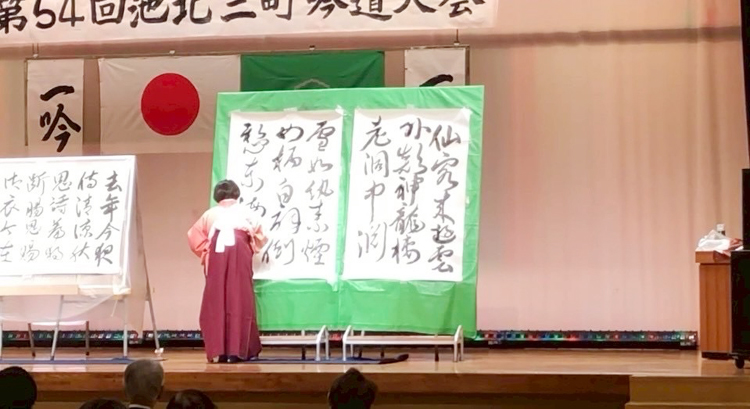 第54回池北三町吟道大会
一吟
仙客来遊雲
外巓神龍栖
老洞中淵
雪如紈素煙
如柄白扇倒
懸東海
去年今夜
侍清涼秋
思詩篇独
断腸恩賜
御衣今在